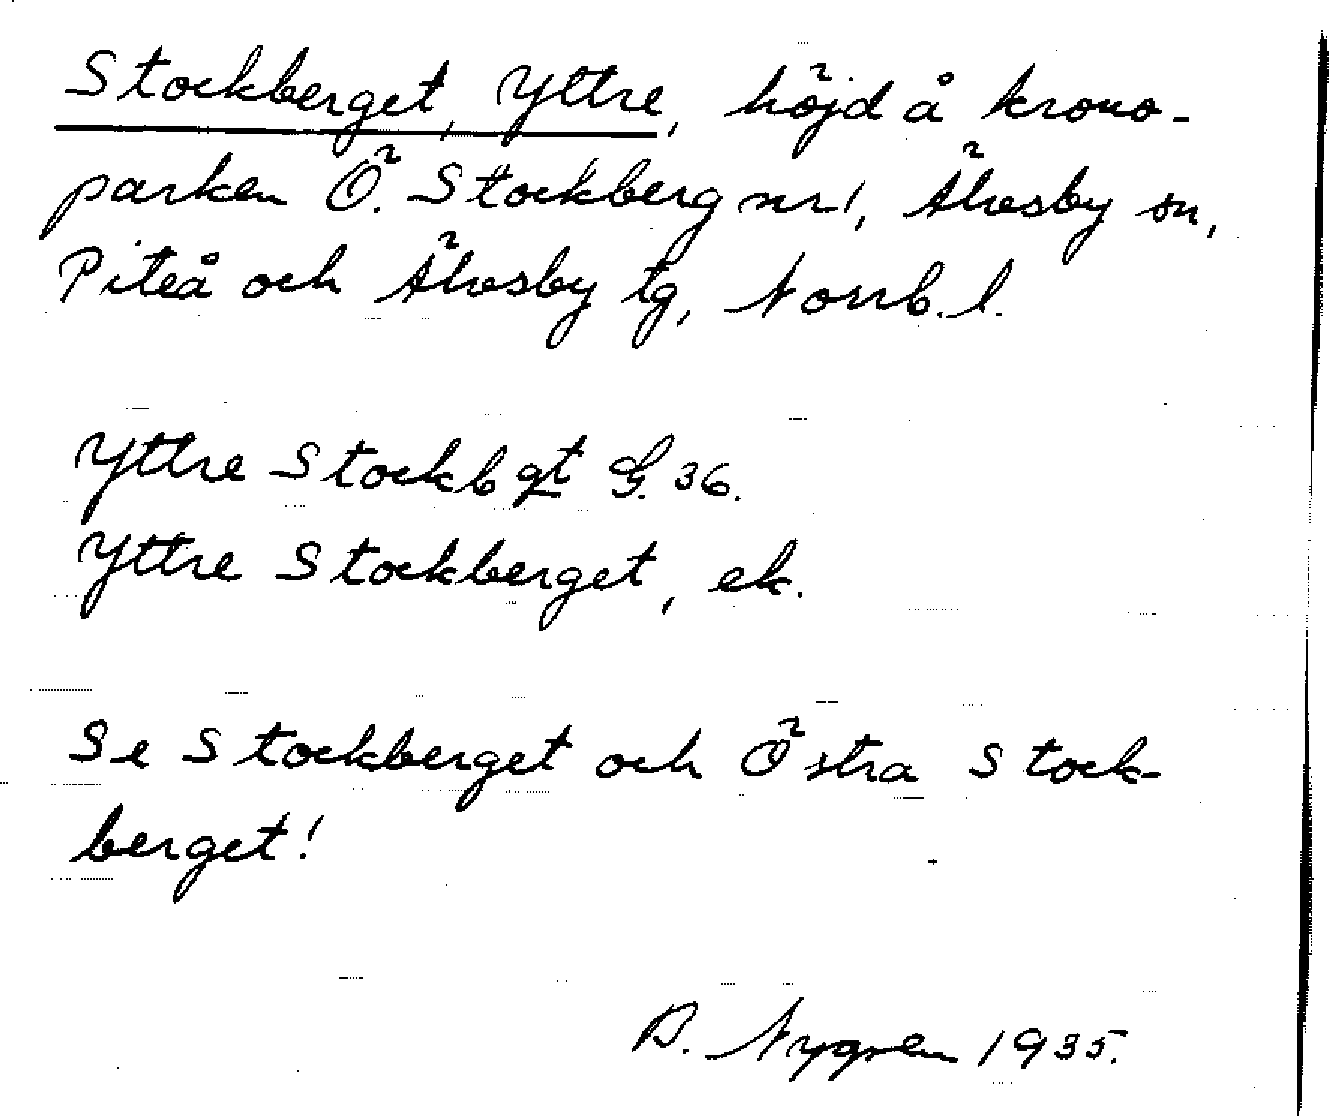 Stockberget, Yttre, höjd å krono-
parken Ö. Stockberg nr 1, Älvsby sn,
Piteå och Älvsby tg, Norrb. l.
Yttre Stockbgt G. 36.
Yttre Stockberget, ek.
Se Stockberget och Östra Stock-
berget!
B. Nygren 1935.